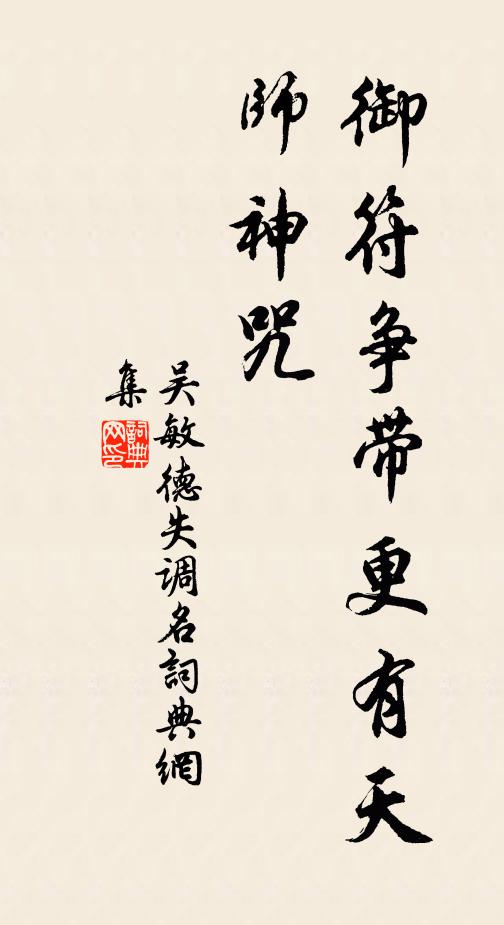 御符争带更有天
师神咒
吴敏德失调名詞典網
集
詞典
网印